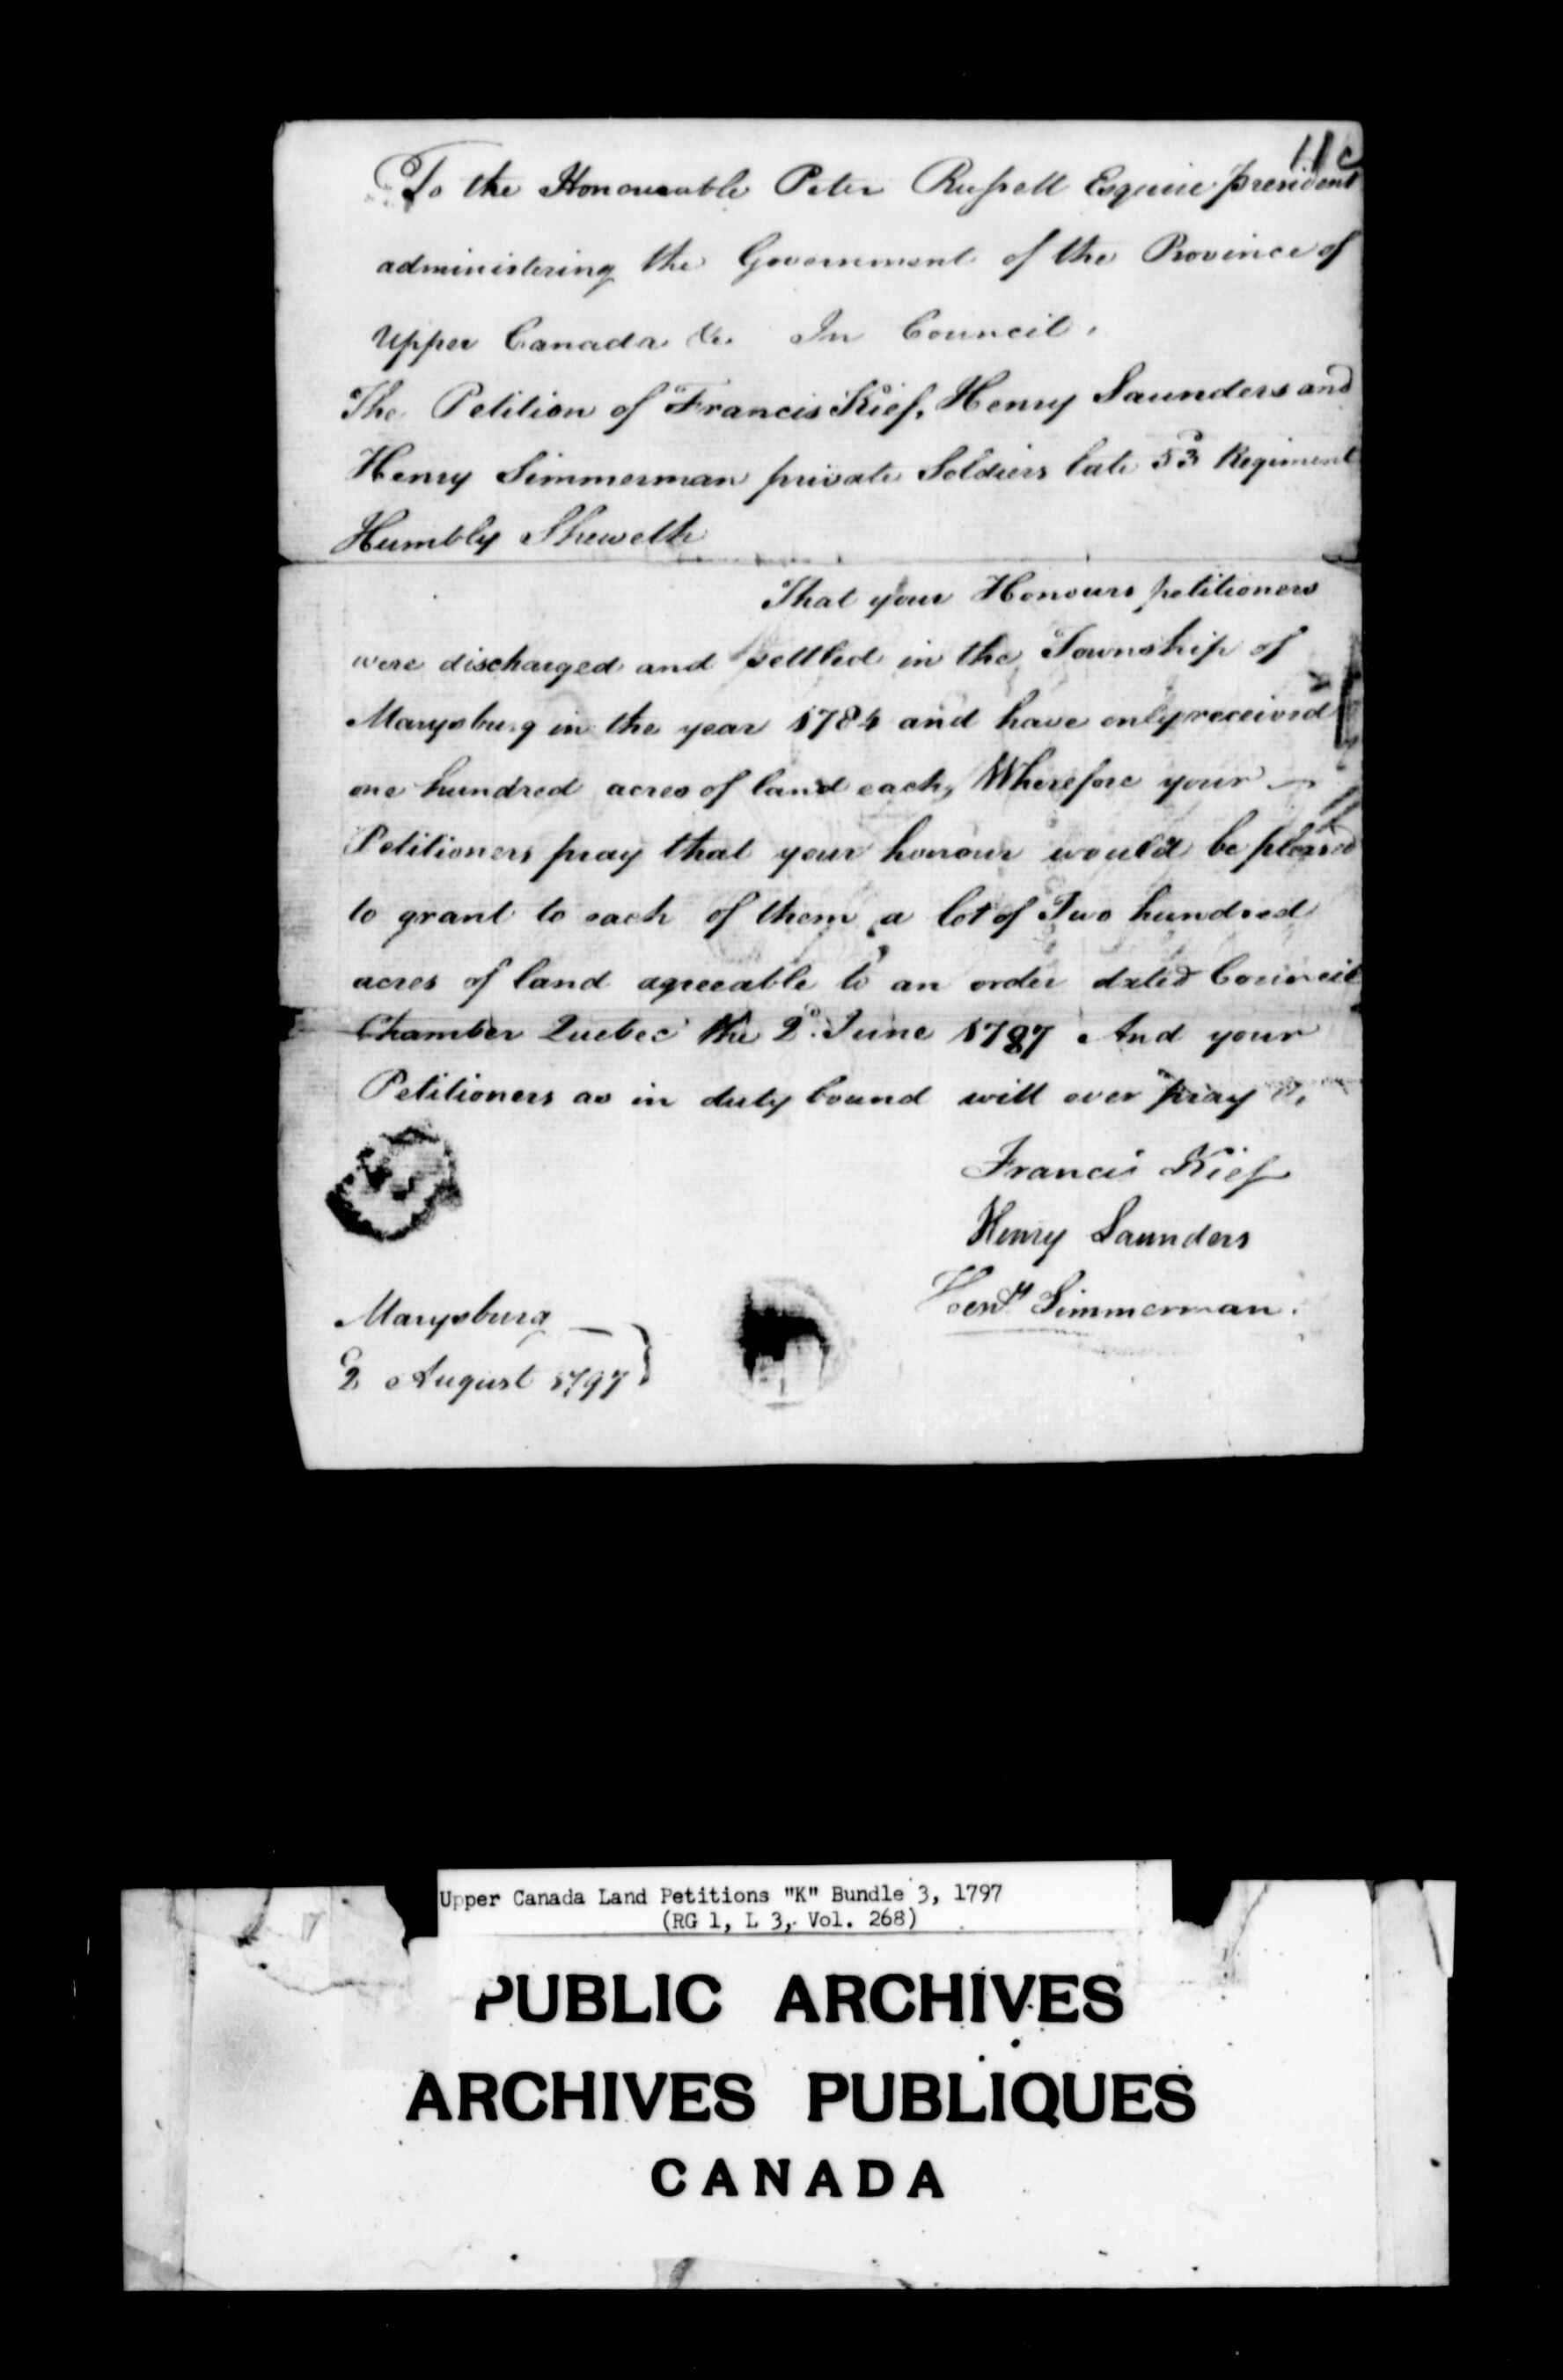 11c
To the Honourable Peter Russell Esquire president
administering the Government of the Province of
Upper Canada &c. In Council.
The Petition of Francis Kief, Henry Saunders and
Henry Simmerman private Soldiers late 53d Regiment
Humbly Sheweth
That your Honours petitioners
were discharged and settled in the Township of
Marysburg in the year 1784 and have only received
one hundred acres of land each, Wherefore your
Petitioners pray that your honour would be pleased
to grant to each of them a lot of Two hundred
acres of land agreeable to an order dated Council
Chamber Quebec the 2d. June 1787 And your
Petitioners as in duty bound will ever pray &c
Francis Kief
Henry Saunders
Henry Simmerman.
Marysburg
2 August 1797
Upper Canada Land Petitions "K" Bundle 3, 1797
(RG 1, L 3, Vol. 268)
PUBLIC ARCHIVES
ARCHIVES PUBLIQUES
CANADA